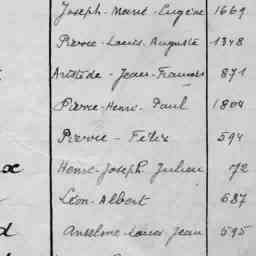 Joseph-Marie-Eugène 1669
Pierre-Louis-Auguste 1348
Aristide-Jean-François 871
Pierre-Henri-Paul 1804
Pierre-Félix 594
Henri-Joseph Julien 72
Léon-Albert 687
Anselme-Louis-Jean 595